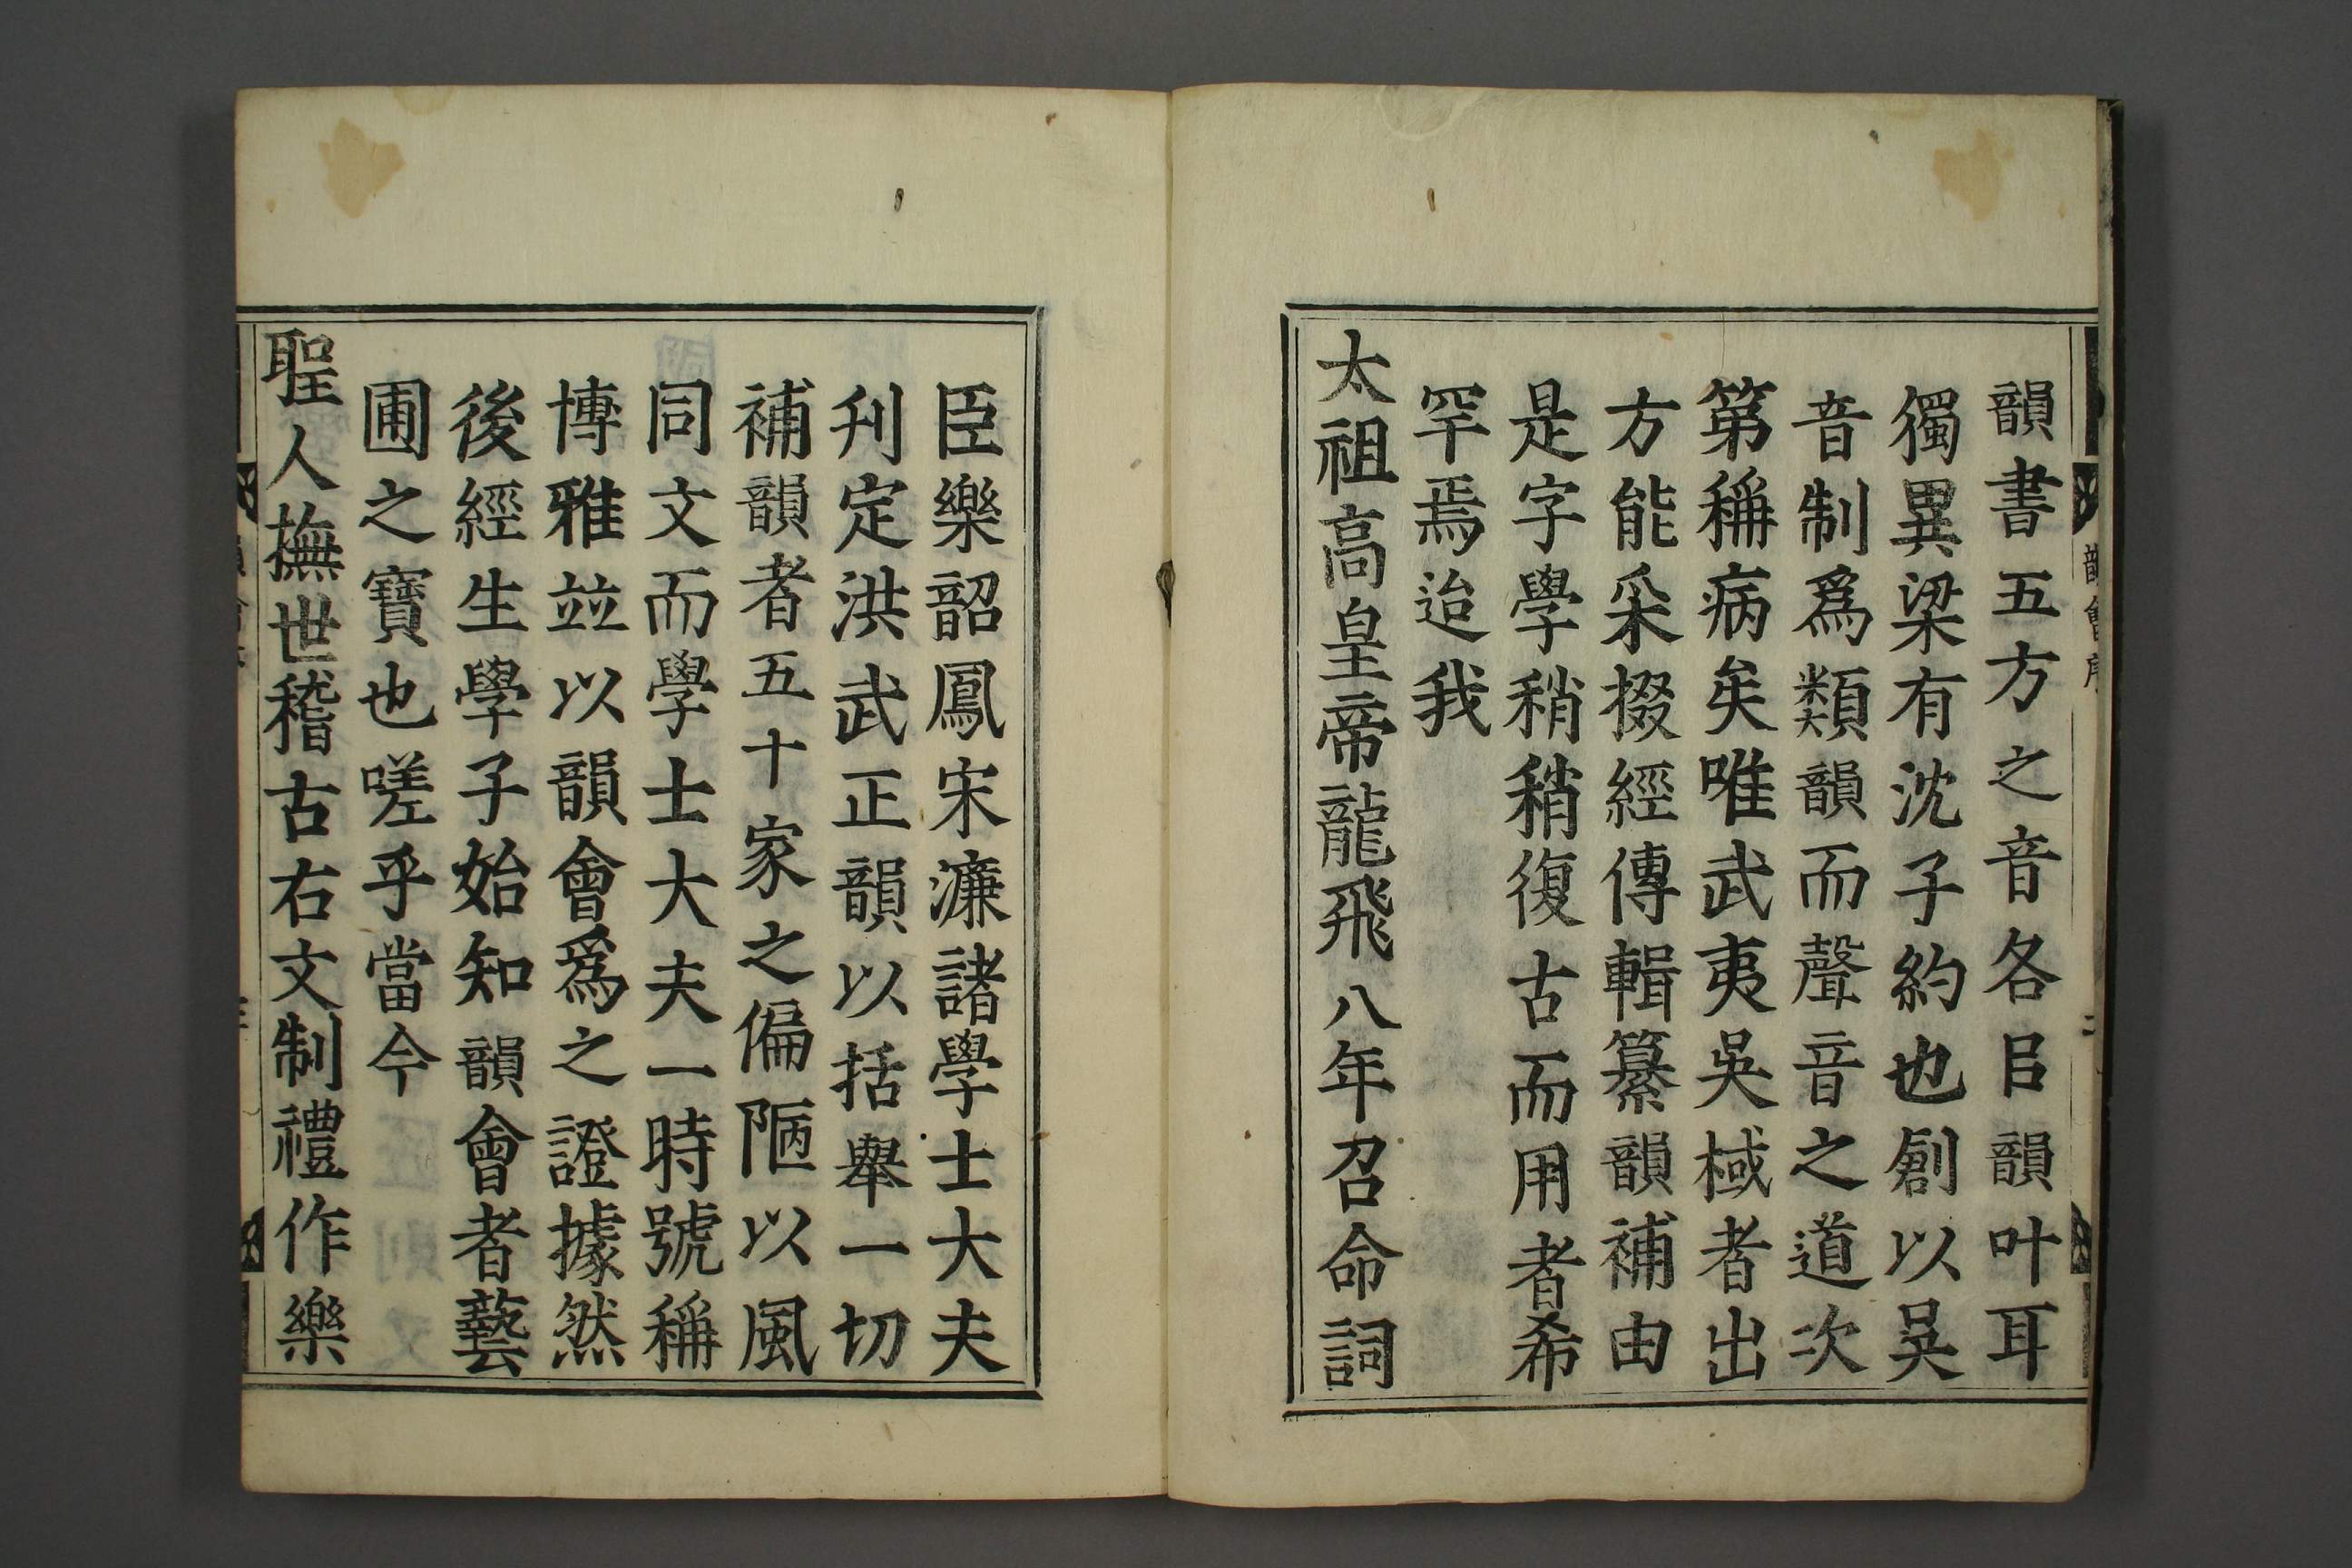 韻書五方之音各㠯韻叶耳
獨異梁有沈子約也創以吳
音制爲類韻而聲音之道次
第稱病矣唯武夷吳棫者出
方能采掇經傳輯纂韻補由
是字學稍稍復古而用者希
罕焉迨我
太祖高皇帝龍飛八年召命詞
臣樂韶鳳宋濂諸學士大夫
刋定洪武正韻以括舉一切
補韻者五十家之偏陋以風
同文而學士大夫一時號稱
博雅並以韻會爲之證據然
後經生學子始知韻會者藝
圃之寶也嗟乎當今
聖人撫世稽古右文制禮作樂
韻會序